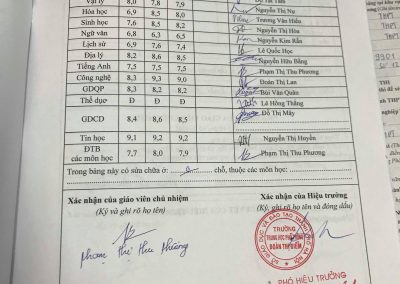 Vật lý 8,0 7,8 7,9
Hóa học 8,3 7,2 7,6 Nguyễn Thị Nụ
Sinh học 7,6 8,2 8,0 Trương Văn Hiều
Ngữ văn 6,8 6,3 6,5 Nguyễn Thị Hòa
Lịch sử 6,9 7,6 7,4 Nguyễn Kim Rần
Địa lý 8,2 8,6 8,5 Lê Quốc Học
Tiếng Anh 7,5 7,5 7,5 Nguyễn Hữu Bằng
Công nghệ 8,3 9,3 9,0 Phạm Thị Thu Phương
GDQP 8,3 8,2 8,2 Đoàn Thị Lan
Thể dục Đ Đ Đ Bùi Văn Quân
GDCD 8,4 8,6 8,5 Lê Hồng Thắng
Đỗ Thị Mây
Tin học 9,1 9,2 9,2 Nguyễn Thị Huyền
ĐTB
các môn học 7,7 8,0 7,9 Phạm Thị Thu Phương
Trong bảng này có sửa chữa ở: chỗ, thuộc các môn học:
Xác nhận của giáo viên chủ nhiệm
(Ký và ghi rõ họ tên)
Phạm Thị Thu Phương
Xác nhận của Hiệu trưởng
(Ký, ghi rõ họ tên và đóng dấu)
SỞ GIÁO DỤC VÀ ĐÀO TẠO THÀNH PHỐ HÀ NỘI
TRƯỜNG
TRUNG HỌC PHỔ THÔNG
ĐOÀN THỊ ĐIỂM
PHÓ HIỆU TRƯỞNG
THPT